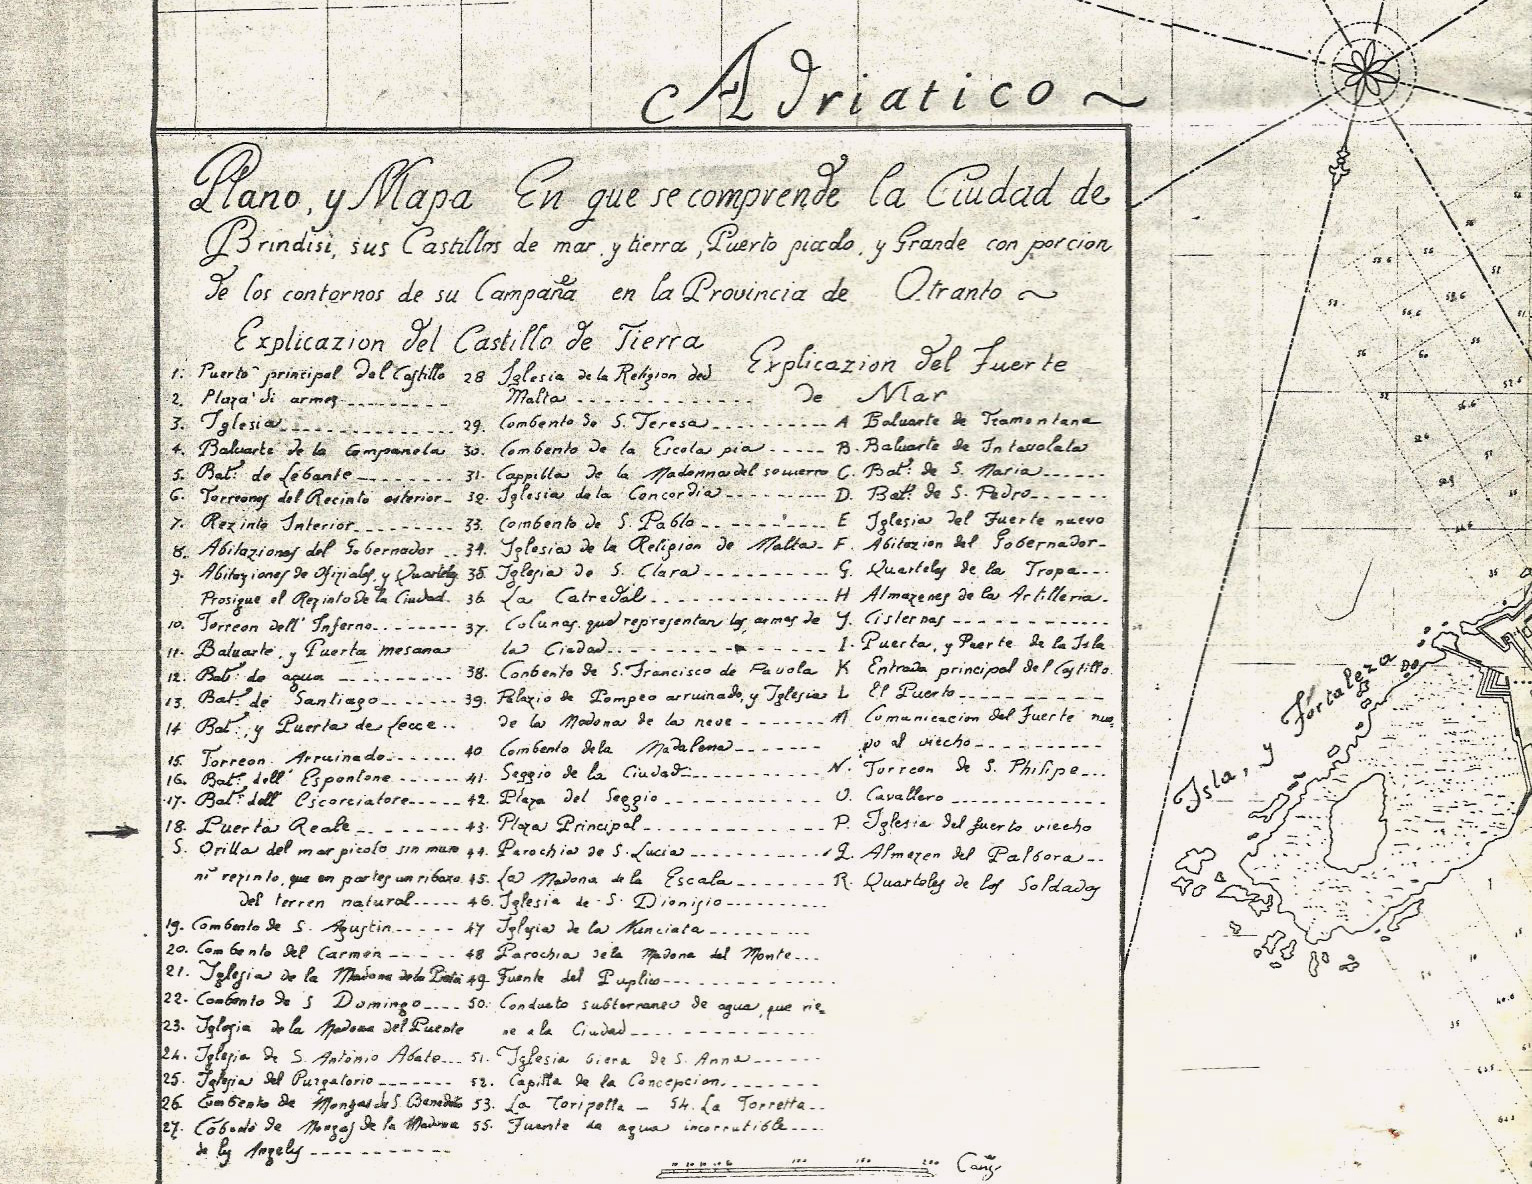 Adriatico
Plano, y Mapa En que se comprende la Ciudad de
Brindisi, sus Castillos de mar, y tierra, Puerto picolo, y Grande con porcion
de los contornos de su Campaña en la Provincia de Otranto
Explicazion del Castillo de Tierra
1. Puerto principal del Castillo
2. Plaza di armes
3. Iglesia
4. Baluarte de la Companela
5. Bat.ª de Lebante
6. Torreones del Recinto esterior
7. Rezinto Interior
8. Abitaziones del Gobernador
9. Abitaziones de Ofiziales, y Quarteles
Prosigue el Rezinto de la Ciudad
10. Torreon dell' Inferno
11. Baluarte, y Puerta mesana
12. Bat.ª de agua
13. Bat.ª de Santiago
14 Bat.ª, y Puerta de Lecce
15. Torreon Arruinado
16. Bat.ª dell' Espontone
17. Bat.ª dell' Escorciatore
18. Puerta Reale
S. Orilla del mar picolo sin muro
ni rezinto, que en partes un ribazo
del terren natural
19. Combento de S. Agustin
20. Combento del Carmen
21. Iglesia de la Madona de la
22. Combento de S Domingo
23. Iglesia de la Madona del Puente
24. Iglesia de S. Antonio Abate
25. Iglesia del Purgatorio
26. de Monjas de S. Benedito
27. de Monjas de la Madona
de los Angeles
28 Iglesia de la Religion de
Malta
29. Combento de S. Teresa
30. Combento de la Escola pia
31. Cappilla de la Madonna del socierro
32. Iglesia de la Concordia
33. Combento de S. Pablo
34. Iglesia de la Religion de Malta
35. Iglesia de S. Clara
36. La Catredal
37. Colunas, que representan las armas de
la Ciudad
38. Conbento de S. Francisco de Pavola
39. Palazio de Pompeo arruinado, y Iglesia
de la Madona de la neve
40 Combento de la Madalena
41. Seggio de la Ciudad
42. Plaza del Seggio
43. Plaza Principal
44. Parochia de S. Lucia
45. La Madona de la Escala
46. Iglesia de S. Dionisio
47 Iglesia de la Nunciata
48 Parochia de la Madona del Monte
49 Fuente del Puplico
50. Conduto subterraneo de agua, que vie=
ne a la Ciudad
51. Iglesia biera de S. Anna
52. Capilla de la Concepcion
53. La - 54. La Torretta
55. Fuente de agua incorrutible
Explicazion del Fuerte
de Mar
A Baluarte de Tramontana
B. Baluarte de Intavolata
C. Bat.ª de S. Maria
D. Bat.ª de S. Pedro
E Iglesia del Fuerte nuevo
F. Abitazion del Gobernador
G. Quarteles de la Tropa
H Almazenes de la Artilleria
Y. Cisternas
I. Puerta, y Puente de la Isla
K Entrada principal del Castillo
L El Puerto
M Comunicacion del Fuerte nue,
vo al viecho
N. Torreon de S. Philipe
O. Cavallero
P. Iglesia del fuerto viecho
Q. Almazen del Palbora
R. Quarteles de los Soldados
Isla, y Fortaleza
100 150 200